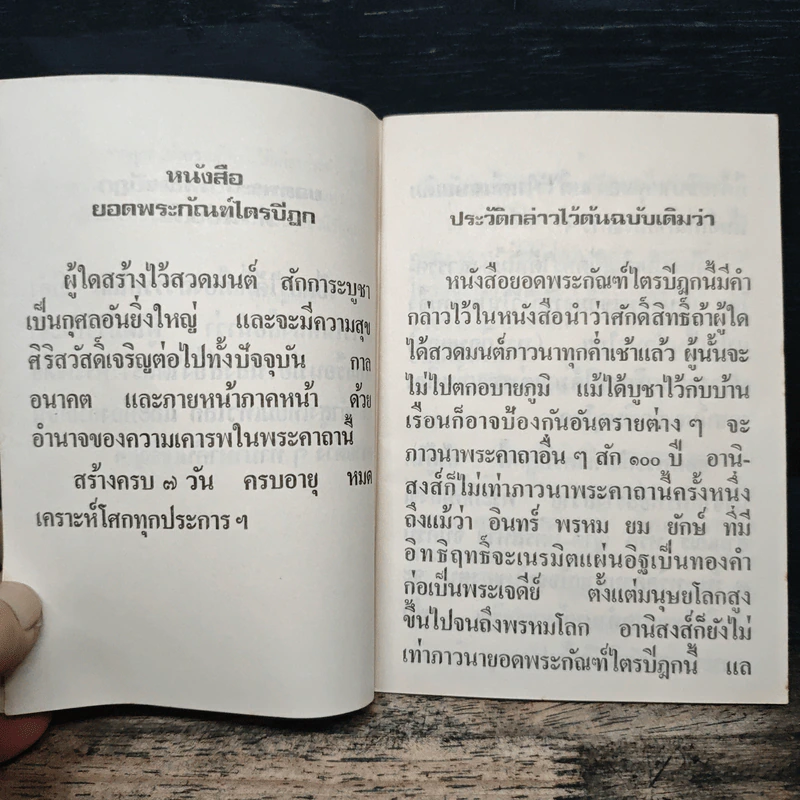 หนังสือ
ยอดพระกัณฑ์ไตรปีฎก
ผู้ใดสร้างไว้สวดมนต์ สักการะบูชา
เป็นกุศลอันยิ่งใหญ่ และจะมีความสุข
ศิริสวัสดิ์เจริญต่อไปทั้งปัจจุบัน กาล
อนาคต และภายหน้าภาคหน้า ด้วย
อำนาจของความเคารพในพระคาถานี้
สร้างครบ ๗ วัน ครบอายุ หมด
เคราะห์โศกทุกประการ ฯ
ประวัติกล่าวไว้ต้นฉบับเดิมว่า
หนังสือยอดพระกัณฑ์ไตรปีฎกนี้มีคำ
กล่าวไว้ในหนังสือนำว่าศักดิ์สิทธิ์ถ้าผู้ใด
ได้สวดมนต์ภาวนาทุกค่ำเช้าแล้ว ผู้นั้นจะ
ไม่ไปตกอบายภูมิ แม้ได้บูชาไว้กับบ้าน
เรือนก็อาจป้องกันอันตรายต่าง ๆ จะ
ภาวนาพระคาถาอื่น ๆ สัก ๑๐๐ ปี อานิ-
สงส์ก็ไม่เท่าภาวนาพระคาถานี้ครั้งหนึ่ง
ถึงแม้ว่า อินทร์ พรหม ยม ยักษ์ ที่มี
อิทธิฤทธิ์จะเนรมิตแผ่นอิฐเป็นทองคำ
ก่อเป็นพระเจดีย์ ตั้งแต่มนุษยโลกสูง
ขึ้นไปจนถึงพรหมโลก อานิสงส์ก็ยังไม่
เท่าภาวนายอดพระกัณฑ์ไตรปีฎกนี้ แล